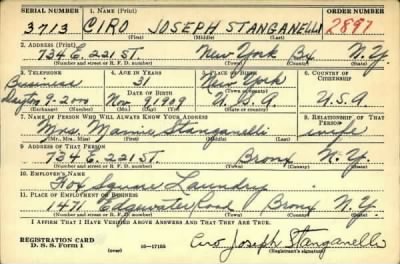 SERIAL NUMBER 1. NAME (Print) ORDER NUMBER
3713 CIRO JOSEPH STANGANELLI 2897
(First) (Middle) (Last)
2. ADDRESS (Print)
734 E. 221 ST. New York Bx N.Y.
(Number and street or R. F. D. number) (Town) (County) (State)
3. TELEPHONE 4. AGE IN YEARS 5. PLACE OF BIRTH 6. COUNTRY OF CITIZENSHIP
Business 31 New York
DATE OF BIRTH (Town or county)
Dayton 9-2000 Nov. 9, 1909 U.S.A. U.S.A.
(Exchange) (Number) (Mo.) (Day) (Yr.) (State or country)
7. NAME OF PERSON WHO WILL ALWAYS KNOW YOUR ADDRESS 8. RELATIONSHIP OF THAT PERSON
Mrs. Mamie Stanganelli wife
(Mr., Mrs., Miss) (First) (Middle) (Last)
9. ADDRESS OF THAT PERSON
734 E. 221 ST. Bronx N.Y.
(Number and street or R. F. D. number) (Town) (County) (State)
10. EMPLOYER'S NAME
Fox Square Laundry
11. PLACE OF EMPLOYMENT OR BUSINESS
1471 Edgewater Road Bronx N.Y.
(Number and street or R. F. D. number) (Town) (County) (State)
I AFFIRM THAT I HAVE VERIFIED ABOVE ANSWERS AND THAT THEY ARE TRUE.
REGISTRATION CARD
D. S. S. Form 1 (over) 16-17105 Ciro Joseph Stanganelli
(Registrant's signature)